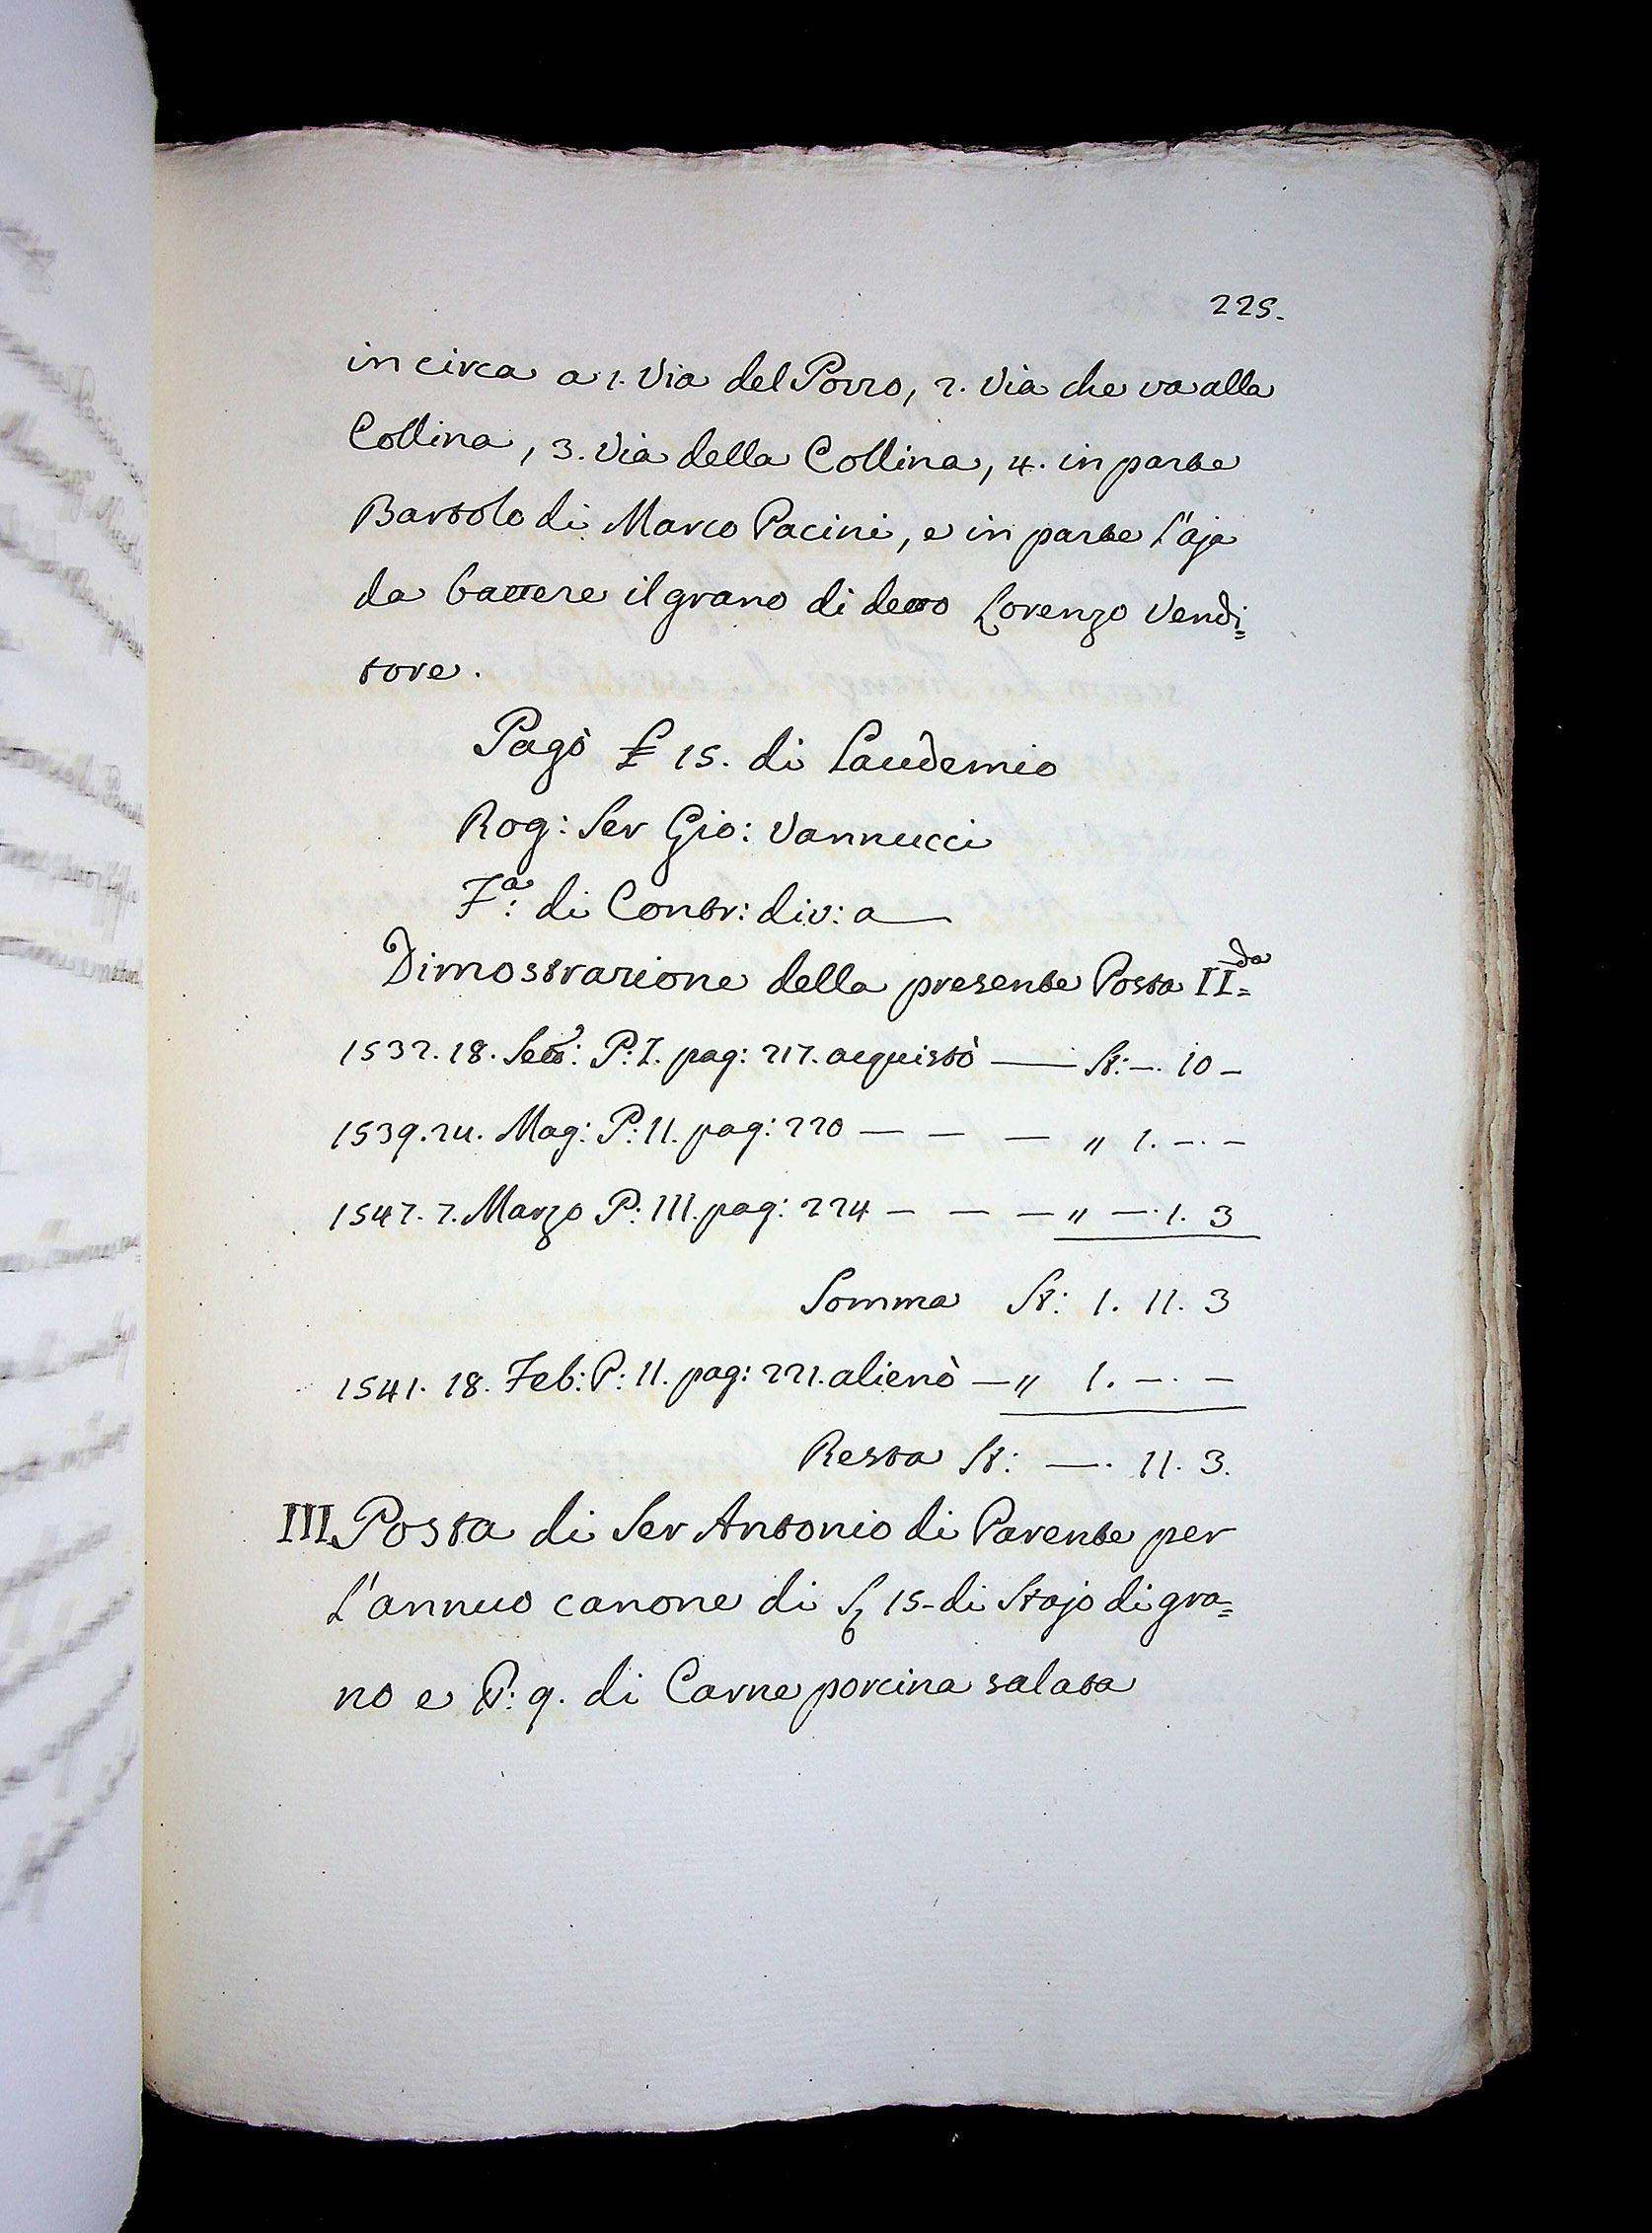 225.
in circa a 1. Via del Porro, 2. Via che va alla
Collina, 3. Via della Collina, 4. in parte
Bartolo di Marco Pacini, e in parte l'aja
da battere il grano di detto Lorenzo Vendi=
tore.
Pagò £ 15. di Laudemio
Rog: Ser Gio: Vannucci
Fa: di Contr: div: a
Dimostrazione della presente Posta IIda=
1532. 18. Setto: P: I. pag: 217. acquistò — St: —. 10 —
1539. 24. Mag: P: II. pag: 220 — — — " 1. —. —
1547. 7. Marzo P: III. pag: 224 — — — " —. 1. 3
Somma St: 1. 11. 3
1541. 18. Feb: P: II. pag: 221. alienò — " 1. —. —
Resta St: —. 11. 3.
III. Posta di Ser Antonio di Parente per
l'annuo canone di 15 - di Stajo di gra=
no e 9. di Carne porcina salata